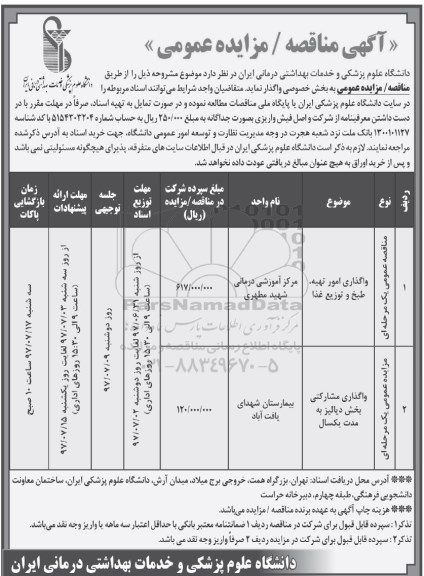 « آگهی مناقصه / مزایده عمومی »
دانشگاه علوم پزشکی و خدمات بهداشتی درمانی ایران
دانشگاه علوم پزشکی و خدمات بهداشتی درمانی ایران در نظر دارد موضوع مشروحه ذیل را از طریق
مناقصه/ مزایده عمومی به بخش خصوصی واگذار نماید. متقاضیان واجد شرایط می‌توانند اسناد مربوطه را
در سایت دانشگاه علوم پزشکی ایران یا پایگاه ملی مناقصات مطالعه نموده و در صورت تمایل به تهیه اسناد، صرفاً در مهلت مقرر با در
دست داشتن معرفینامه از شرکت و اصل فیش واریزی بصورت جداگانه به مبلغ ۲۵۰/۰۰۰ ریال به حساب شماره ۵۱۵۴۳۰۳۲۰۴ با کد شناسه
۱۳۰۰۱۰۱۱۲۷ بانک ملت نزد شعبه هجرت در وجه مدیریت نظارت و توسعه امور عمومی دانشگاه، جهت خرید اسناد به آدرس ذکر شده
مراجعه نمایند. لازم به ذکر است دانشگاه علوم پزشکی ایران در قبال اطلاعات سایت های متفرقه، پذیرای هیچگونه مسئولیتی نمی باشد
و پس از خرید اوراق به هیچ عنوان مبالغ دریافتی عودت داده نخواهد شد.
ردیف
نوع
موضوع
نام واحد
مبلغ سپرده شرکت در مناقصه/مزایده (ریال)
مهلت توزیع اسناد
جلسه توجیهی
مهلت ارائه پیشنهادات
زمان بازگشایی پاکات
۱
مناقصه عمومی یک مرحله ای
واگذاری امور تهیه، طبخ و توزیع غذا
مرکز آموزشی درمانی شهید مطهری
۶۱۷/۰۰۰/۰۰۰
۲
مزایده عمومی یک مرحله ای
واگذاری مشارکتی بخش دیالیز به مدت یکسال
بیمارستان شهدای یافت آباد
۱۲۰/۰۰۰/۰۰۰
از روز شنبه ۹۷/۰۶/۳۱ لغایت روز دوشنبه ۹۷/۰۷/۰۲
(ساعت ۹ الی ۱۵:۳۰ روزهای اداری)
روز دوشنبه ۹۷/۰۷/۰۹
از روز سه شنبه ۹۷/۰۷/۰۳ لغایت روز یکشنبه ۹۷/۰۷/۱۵
(ساعت ۹ الی ۱۵:۳۰ روزهای اداری)
سه شنبه ۹۷/۰۷/۱۷ ساعت ۱۰ صبح
ParsNamadData
۰۲۱-۸۸۳۴۹۶۷۰-۵
*** آدرس محل دریافت اسناد: تهران، بزرگراه همت، خروجی برج میلاد، میدان آرش، دانشگاه علوم پزشکی ایران، ساختمان معاونت
دانشجویی فرهنگی، طبقه چهارم، دبیرخانه حراست
*** هزینه چاپ آگهی به عهده برنده مناقصه / مزایده می‌باشد.
تذکر۱: سپرده قابل قبول برای شرکت در مناقصه ردیف ۱ ضمانتنامه معتبر بانکی با حداقل اعتبار سه ماهه یا واریز وجه نقد می‌باشد.
تذکر۲: سپرده قابل قبول برای شرکت در مزایده ردیف ۲ صرفاً واریز وجه نقد می باشد.
دانشگاه علوم پزشکی و خدمات بهداشتی درمانی ایران